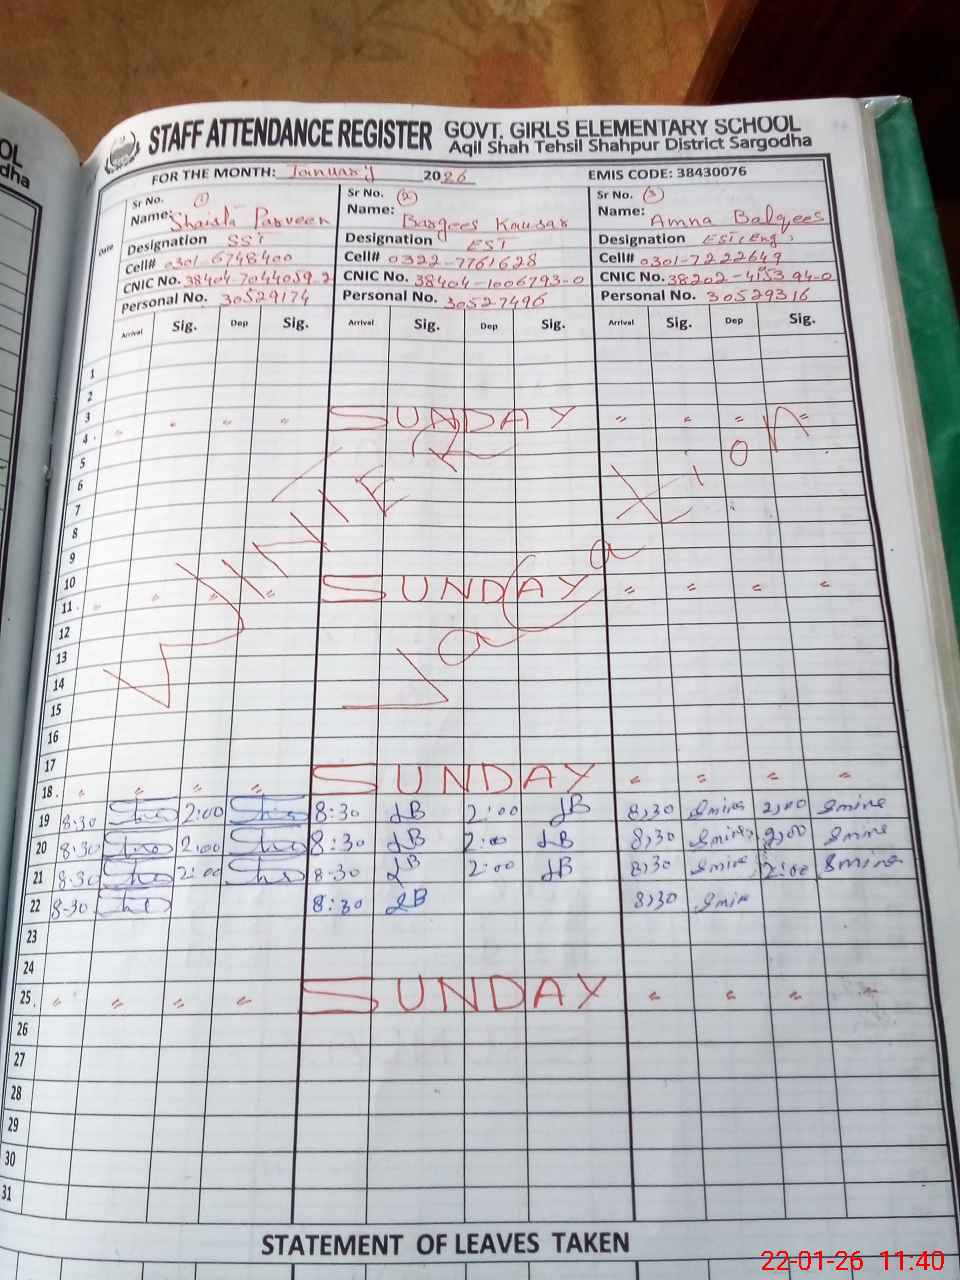 STAFF ATTENDANCE REGISTER GOVT. GIRLS ELEMENTARY SCHOOL
Aqil Shah Tehsil Shahpur District Sargodha
FOR THE MONTH: January 2026 EMIS CODE: 38430076
Sr No. 1 Sr No. 2 Sr No. 3
Name: Shaista Parveen Name: Bargees Kausar Name: Amna Balqees
Date
Designation SST Designation EST Designation EST(Eng)
Cell# 0301-6748400 Cell# 0322-7761628 Cell# 0301-7222649
CNIC No. 38404-7044059-2 CNIC No. 38404-1006793-0 CNIC No. 38202-4153 94-0
Personal No. 30529174 Personal No. 30527496 Personal No. 30529316
Arrival Sig. Dep Sig. Arrival Sig. Dep Sig. Arrival Sig. Dep Sig.
1
2
3
4. " " " " SUNDAY " " " "
5
6
7
8
9
10
11. " " " " SUNDAY " " " "
12
13
14
15
WINTER Vacation
16
17
18. " " " " SUNDAY " " " "
19 8:30 2:00 8:30 2:00 8,30 2,00
20 8:30 2:00 8:30 2:00 8,30 2,00
21 8:30 2:00 8:30 2:00 8,30 2:00
22 8-30 8:30 8,30
23
24
25. " " " " SUNDAY " " " "
26
27
28
29
30
31
STATEMENT OF LEAVES TAKEN
22-01-26 11:40